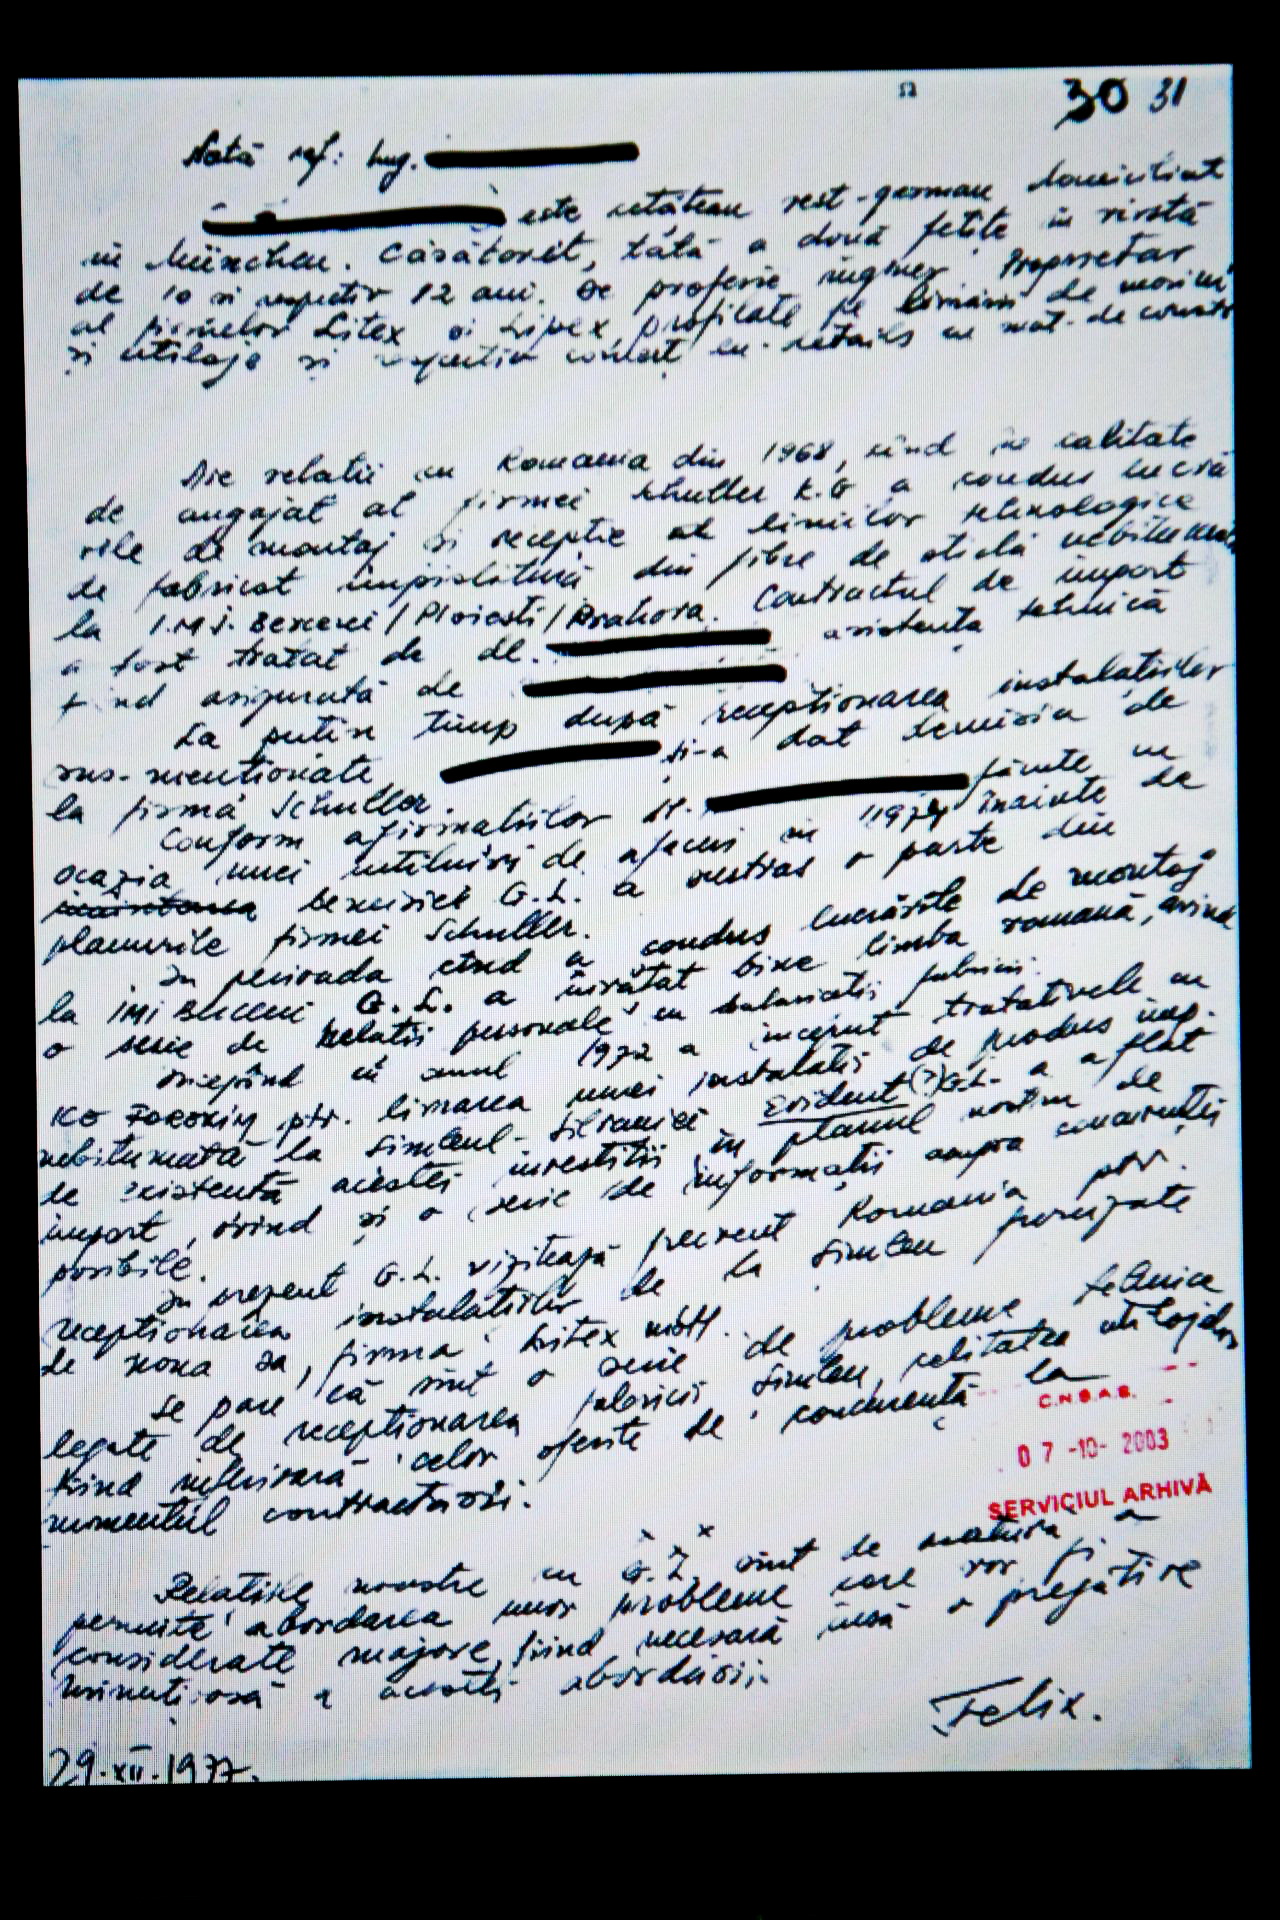 30 31
Notă ref: Ing.
este cetățean vest-german domiciliat
in München. Căsătorit, tată a două fetițe in virstă
de 10 si respectiv 12 ani. De profesie inginer. Proprietar
al firmelor Litex si Lipex profilate pe de
și utilaje si respectiv en-details cu mat. de constr
Are relatii cu Romania din 1968, cînd in calitate
de angajat al firmei Schuller K.G a condus lucră
rile de montaj si receptie al liniilor tehnologice
de fabricat împislitură din fibre de sticlă nebitumată
la I.M.I. Berceni / Ploiesti / Prahova. Contractul de import
a fost tratat de dl. asistența tehnică
fiind asigurată de
La putin timp după recepționarea instalațiilor
sus-mentionate și-a dat demisia de
la firmă Schuller.
Conform afirmatiilor dl. făcute cu
ocazia unei intilniri de afaceri in 1974 înainte de
demisiei G.L. a sustras o parte din
planurile firmei Schuller.
In perioada cînd a condus lucrările de montaj
la IMI Berceni G.L. a invătat bine limba romană, avind
o serie de relatii personale cu salariatii fabricii.
Incepînd cu anul 1972 a inceput tratativele cu
ptr. livrarea unei instalatii de produs imp.
nebitumată la Simleul-Silvaniei. Evident (?) G.L. a aflat
de existentă acestei investitii in planul nostru de
import, avind și o serie de informații asupra concurenții
posibile.
In prezent G.L. vizitează frecvent Romania ptr.
receptionarea instalatiilor de la Simleu furnizate
de noua sa, firma Litex
Se pare că sint o serie de probleme tehnice
legate de receptionarea fabricii Simleu, calitatea utilajelor
fiind inferioară celor oferite de concurentă la
momentul contractării.
C.N.S.A.S.
07-10-2003
SERVICIUL ARHIVĂ
x x x
Relatiile noastre cu G.L. sint de natură a
permite abordarea unor probleme care vor fi
considerate majore, fiind necesară insă o pregătire
minuțioasă a acestei abordări.
Felix.
29.XII.1977.